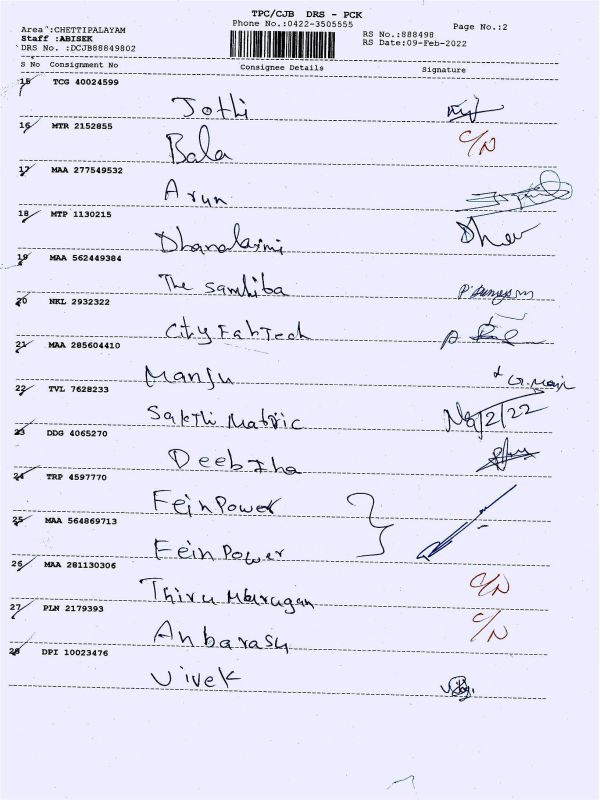 TPC/CJB DRS - PCK
Phone No.:0422-3505555
Page No.:2
Area :CHETTIPALAYAM
RS No.:888498
Staff :ABISEK
RS Date:09-Feb-2022
DRS No. :DCJB88849802
S No Consignment No Consignee Details Signature
15 TCG 40024599
Jothi
16 MTR 2152855
Bala C/N
17 MAA 277549532
Arun
18 MTP 1130215
Dhanalaxmi Dhan
19 MAA 562449384
The Samhiba
20 NKL 2932322
City Fab Tech
21 MAA 285604410
Manju
22 TVL 7628233
Sakthi Matric
23 DDG 4065270
Deebiha
24 TRP 4597770
Fein Power
25 MAA 564869713
Fein Power
26 MAA 281130306
Thiru Murugan C/N
27 PLN 2179393
Anbarasu C/N
28 DPI 10023476
Vivek